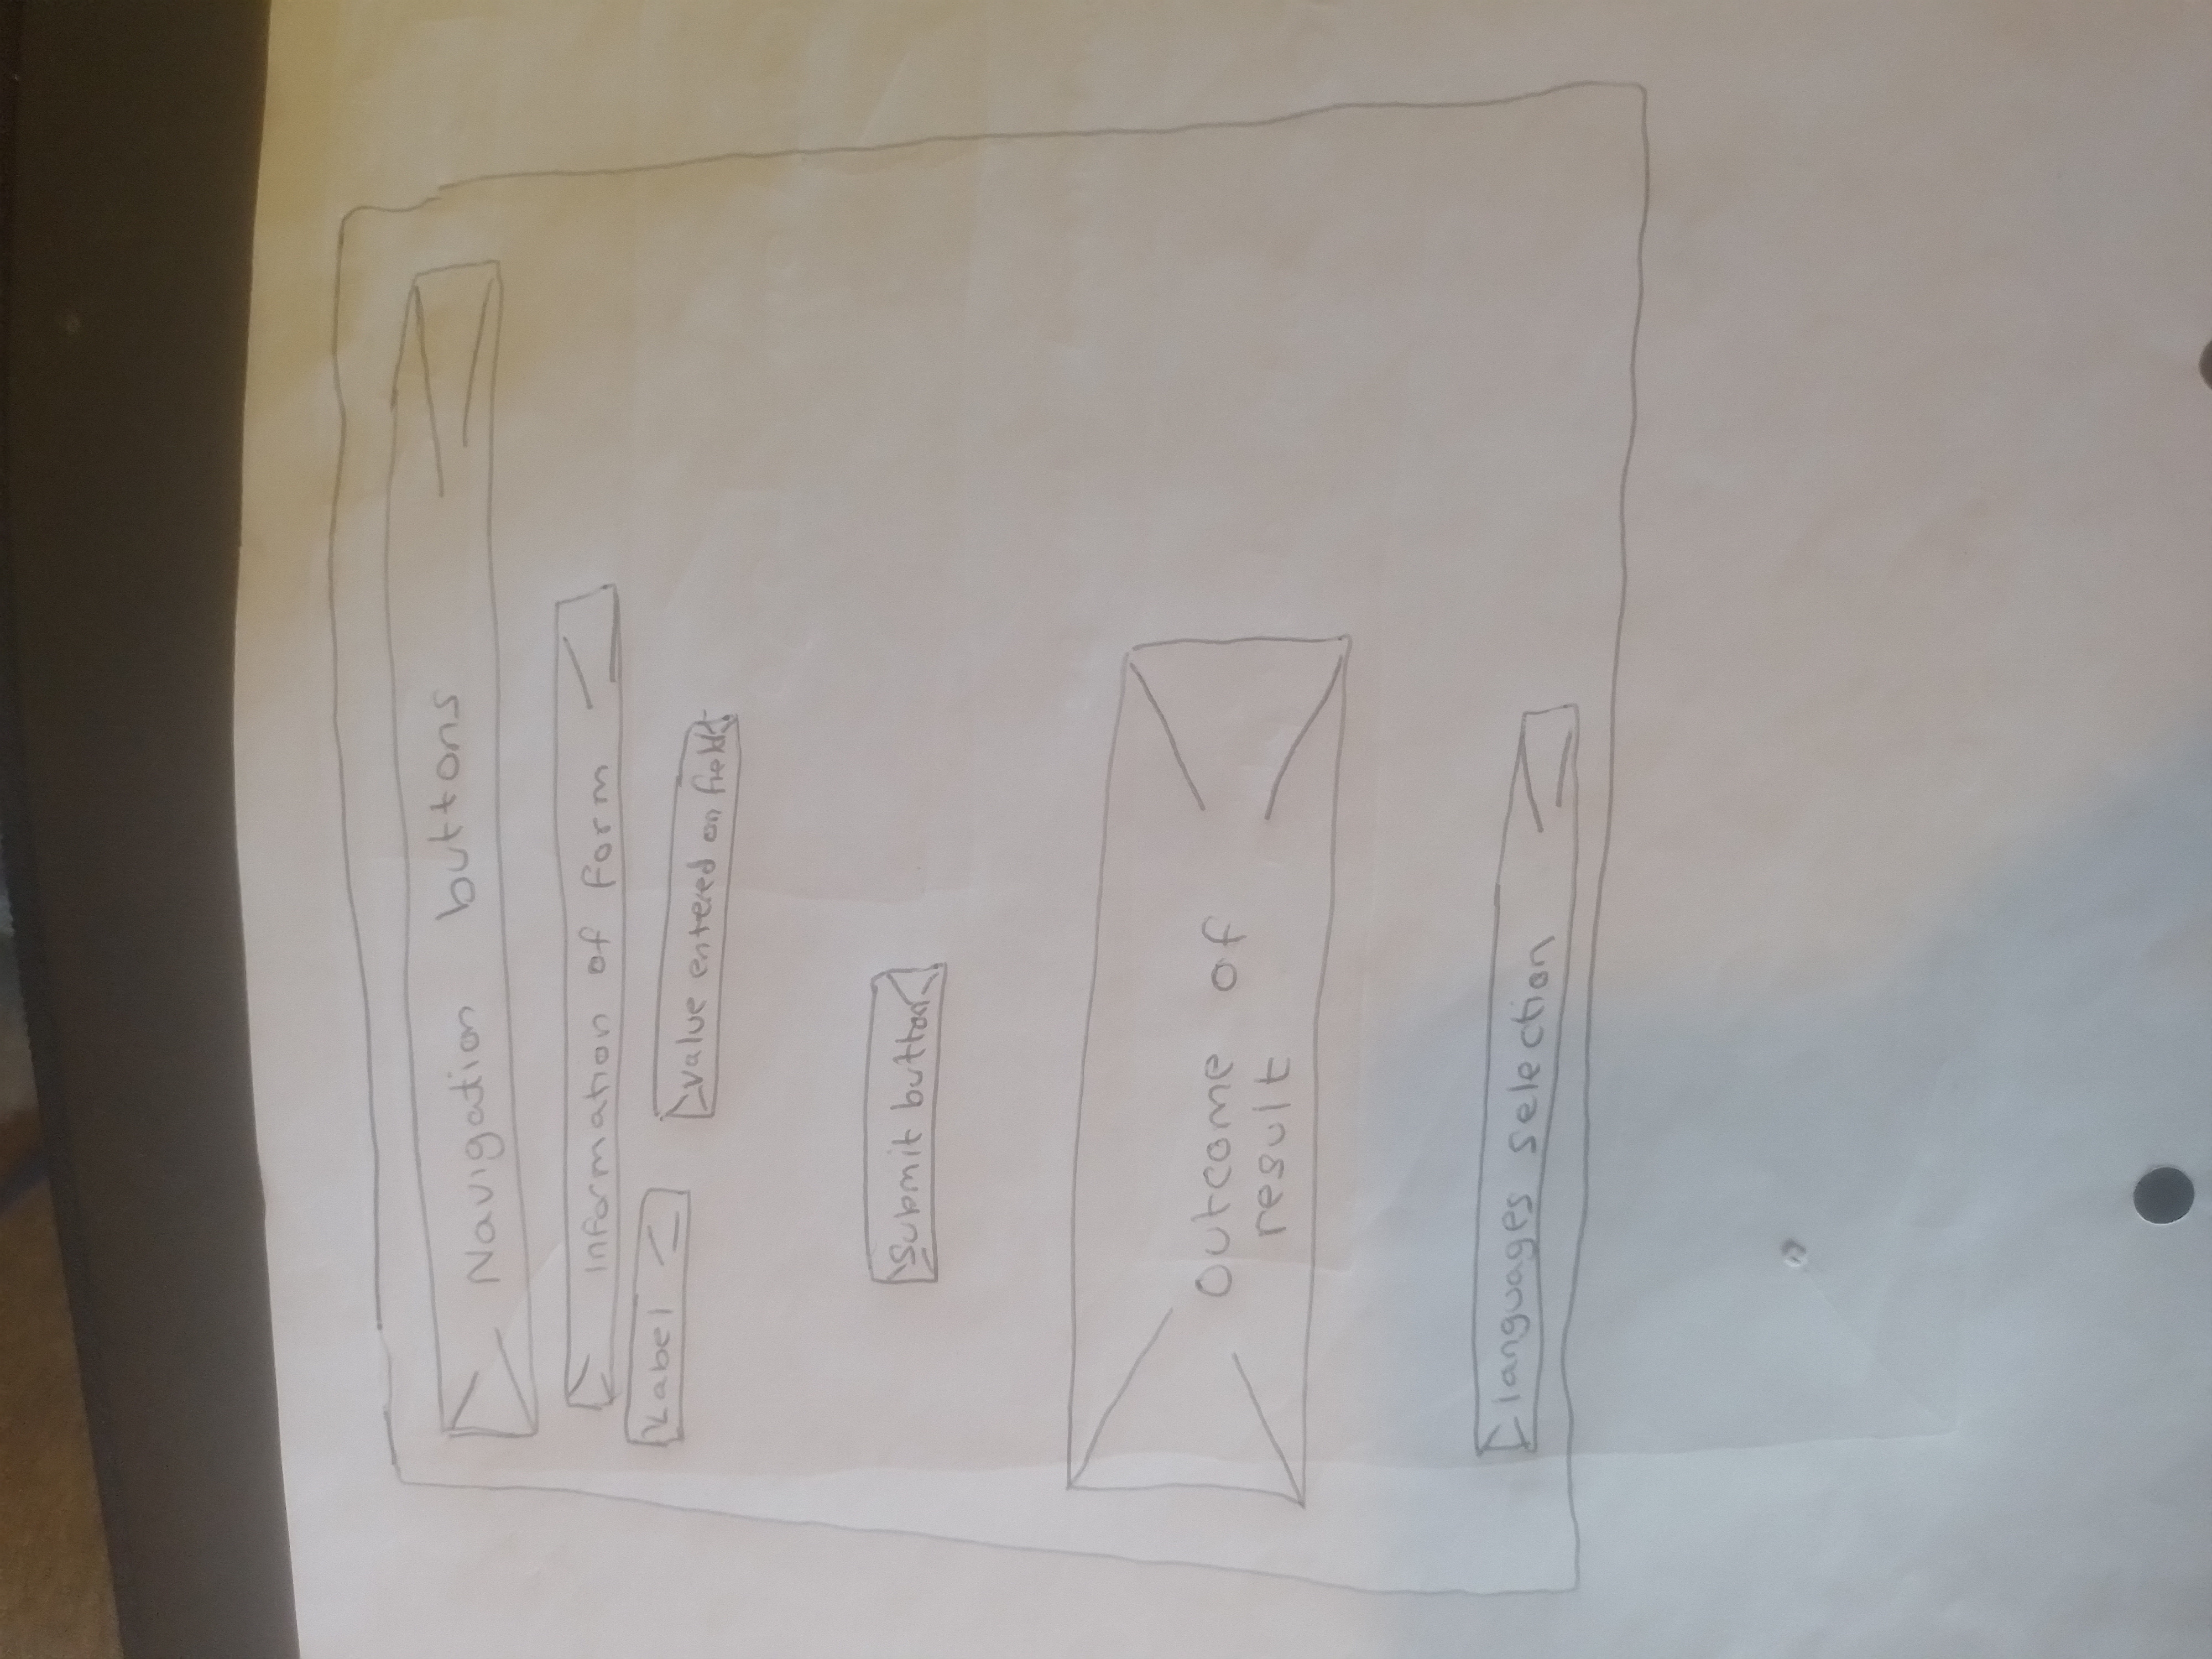 Navigation buttons
Information of form
Label
value entered on field
Submit button
Outcome of
result
languages selection